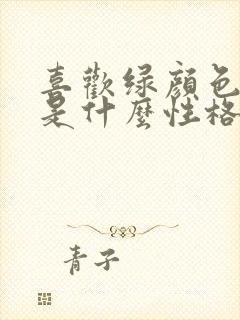 喜歡绿顏色
是什麼性格
青子